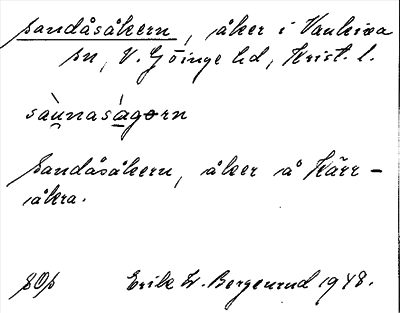 sandåsåkern, åker i Vankiva
sn, V. Göinge hd, Krist. l.
sàu̲nasa̲gørn
sandåsåkern, åker å Kärr-
åkra.
Erik W. Bergenrud 1948.